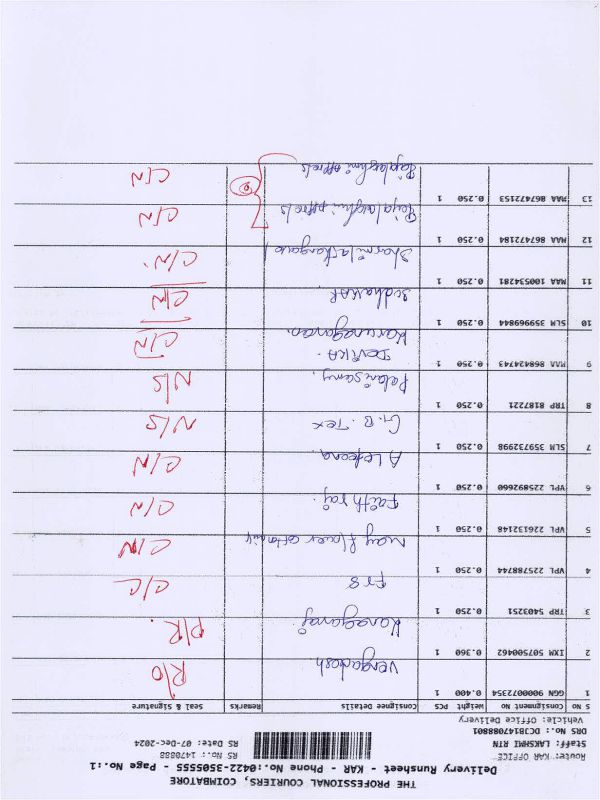 THE PROFESSIONAL COURIERS, COIMBATORE
Delivery Runsheet - KAR - Phone No.:0422-3505555 - Page No.:1
Route: KAR OFFICE RS No.: 1470888
Staff: LAKSHMI RTN RS Date: 07-Dec-2024
DRS No.: DCB14708801
Vehicle: Office Delivery
S No Consignment No Weight PCS Consignee Details Remarks Seal & Signature
1 GGN 900072354 0.400 1 Vengadesh R/O
2 IXM 507500462 0.360 1 Kanagaraj P/R.
3 TRP 5403251 0.250 1 FrS C/C
4 VPL 225788744 0.250 1 may flower C/N
5 VPL 226132148 0.250 1 Faith raj. C/N
6 VPL 225892690 0.250 1 C/N
7 SLM 359732998 0.250 1 G.B. Tex N/S
8 TRP 8187221 0.250 1 Palanisamy. N/S
9 MAA 868424743 0.250 1 DEVIKA. C/N
Karunagaran.
10 SLM 359969844 0.250 1 Sudhakar C/N
11 MAA 100534281 0.250 1 C/N
12 MAA 867472184 0.250 1 C/N
13 MAA 867472153 0.250 1 C/N